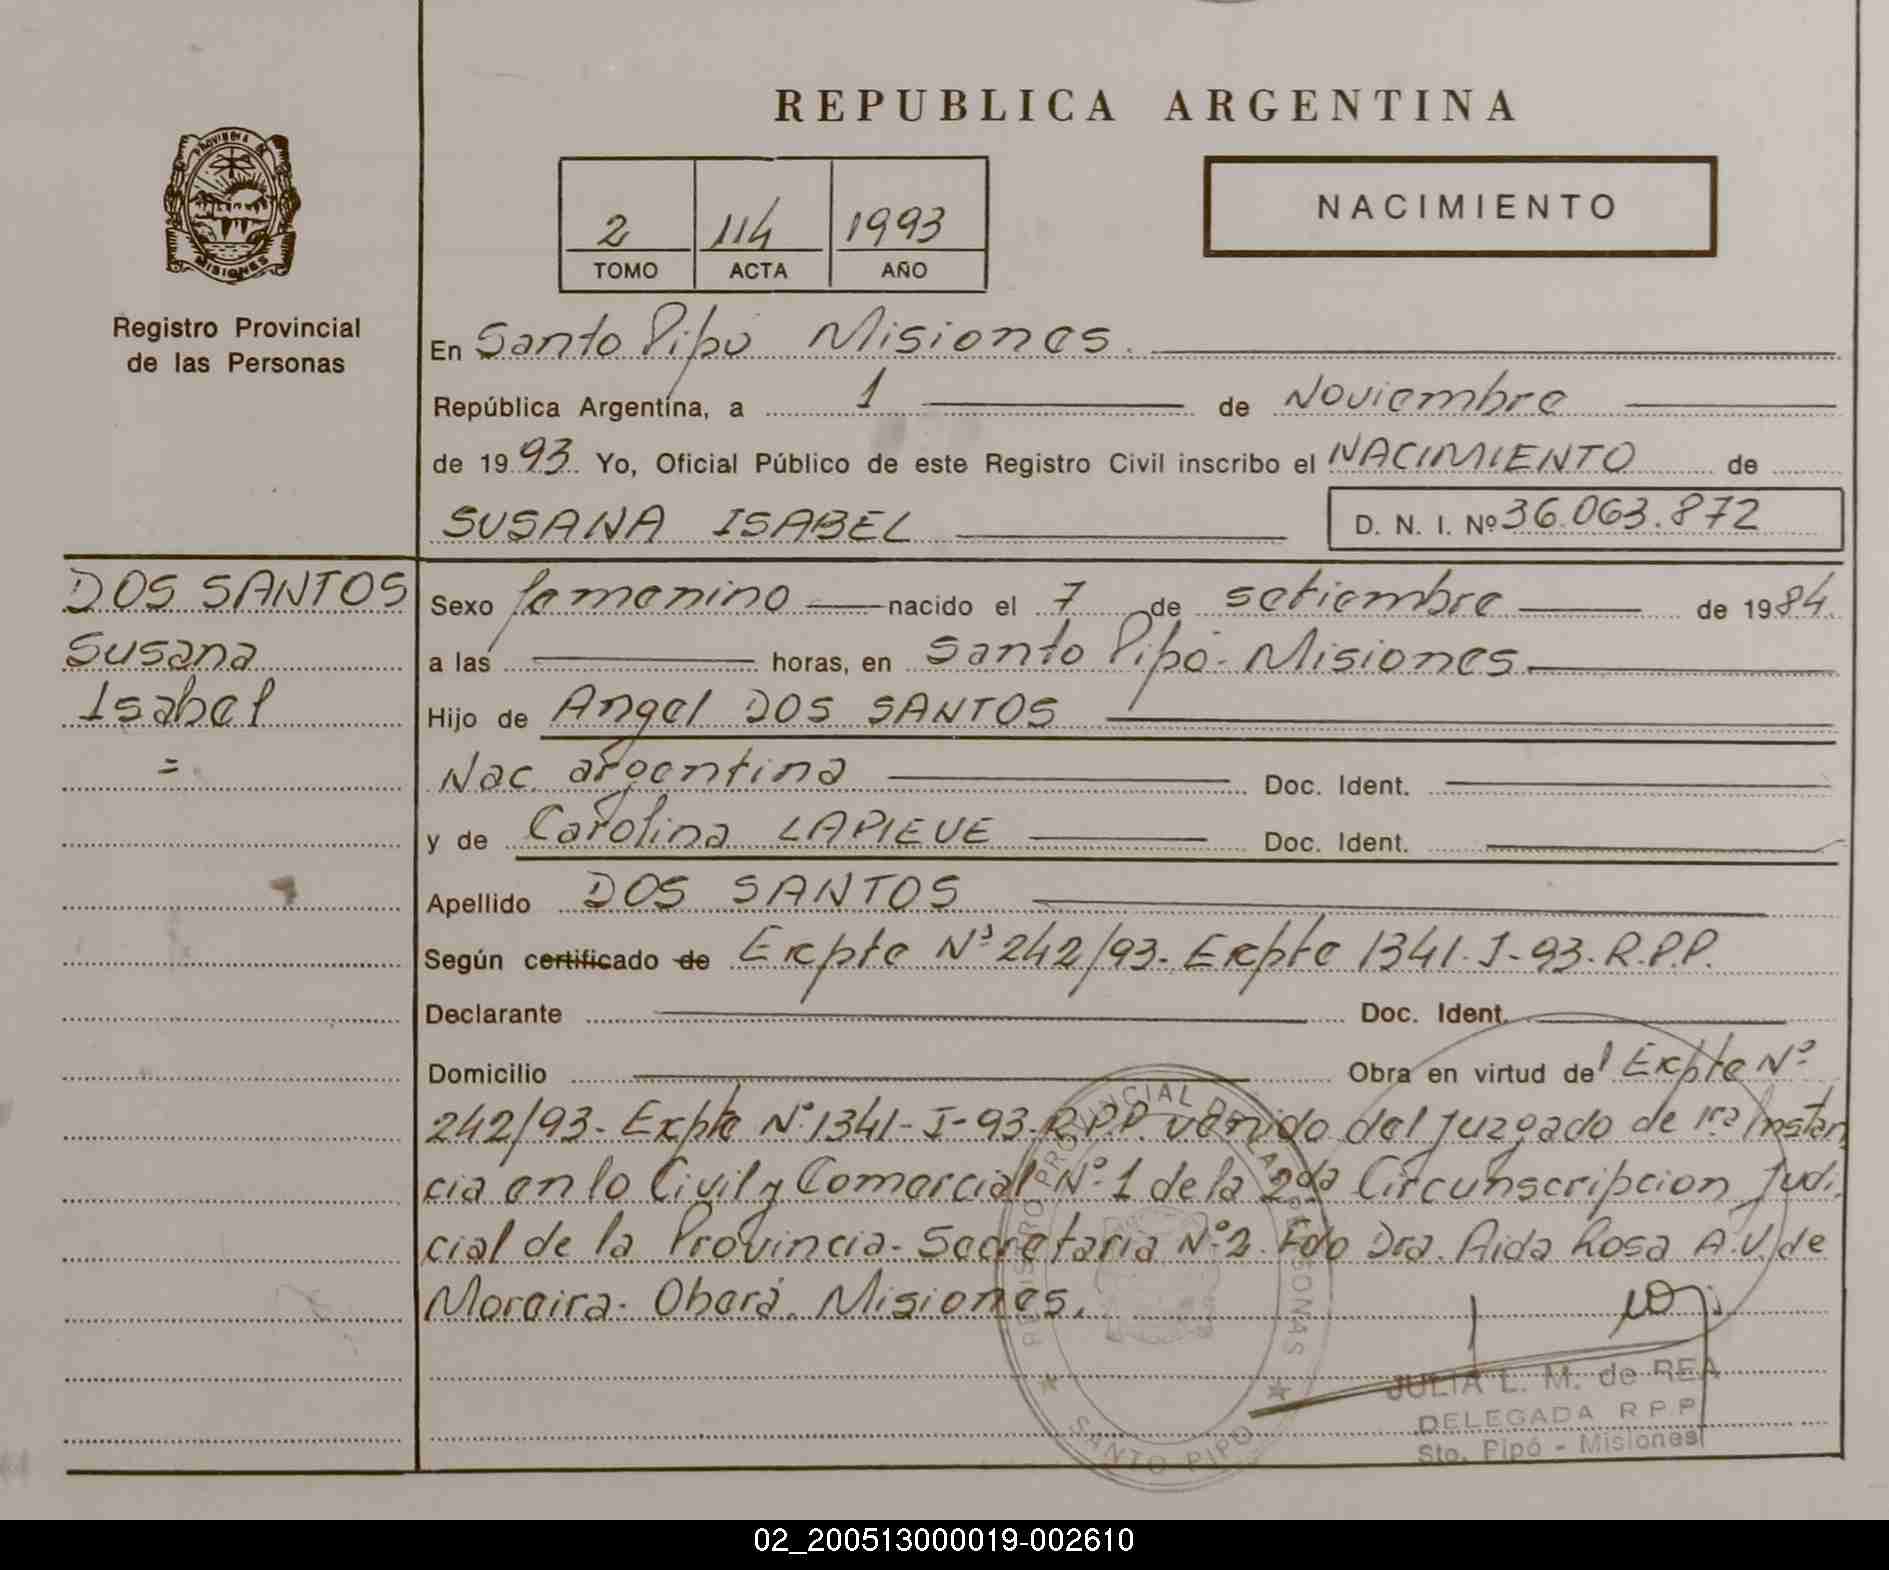 REPUBLICA ARGENTINA
PROVINCIA DE
MISIONES
Registro Provincial
de las Personas
2 114 1993
TOMO ACTA AÑO
NACIMIENTO
En Santo Pipó Misiones.
República Argentina, a 1 de Noviembre
de 1993. Yo, Oficial Público de este Registro Civil inscribo el NACIMIENTO de
SUSANA ISABEL D. N. I. Nº 36.063.872
DOS SANTOS
Susana
Isabel
=
Sexo femenino nacido el 7 de setiembre de 1984.
a las horas, en Santo Pipó - Misiones
Hijo de Angel DOS SANTOS
Nac. argentina Doc. Ident.
y de Carolina LAPIEVE Doc. Ident.
Apellido DOS SANTOS
Según certificado de Expte Nº 242/93. Expte 1341-I-93. R.P.P.
Declarante Doc. Ident.
Domicilio Obra en virtud del Expte Nº
242/93- Expte Nº 1341-I-93. R.P.P. venido del Juzgado de 1ra Instan
cia en lo Civil y Comercial Nº 1 de la 2da Circunscripcion Judi.
cial de la Provincia. Secretaria Nº 2. Fdo Dra. Aida Rosa A.V. de
Moreira. Oberá. Misiones.
REGISTRO PROVINCIAL DE LAS PERSONAS
SANTO PIPO
JULIA L. M. de REA
DELEGADA R.P.P
Sto. Pipó - Misiones
02_200513000019-002610